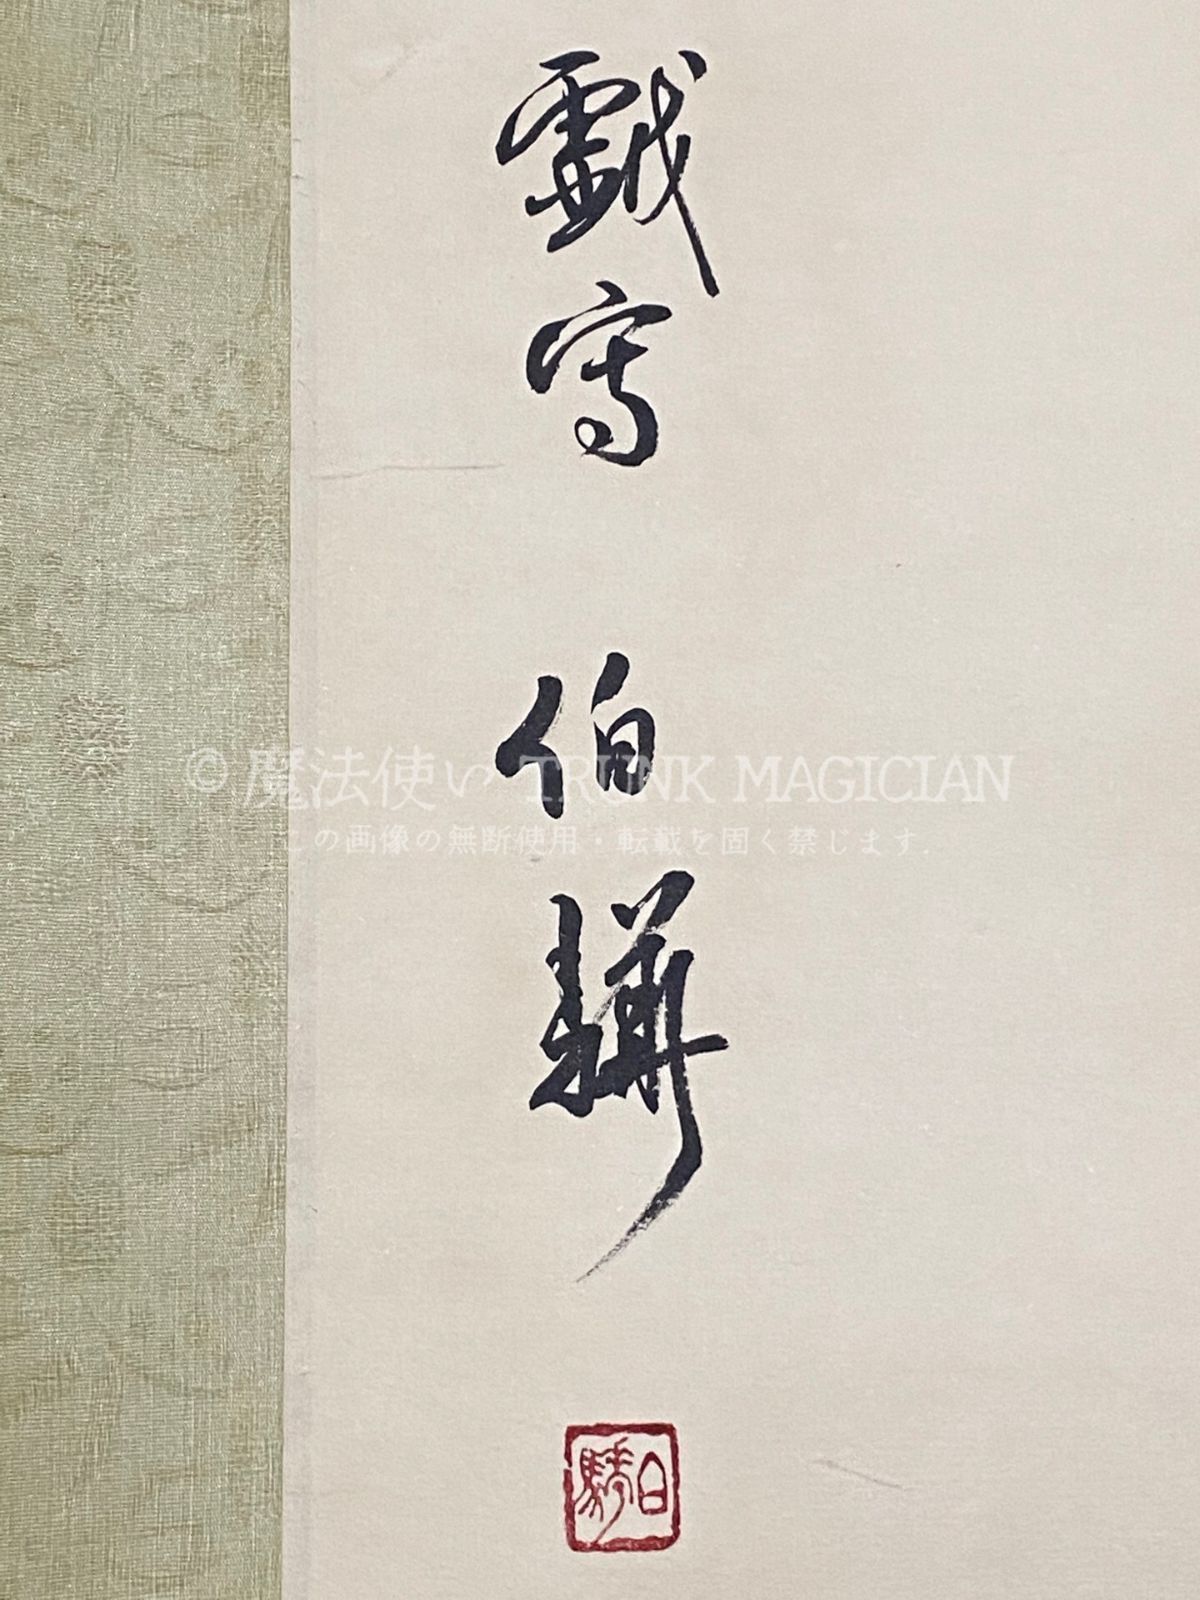 戯写 伯驊
© 魔法使い TRUNK MAGICIAN
この画像の無断使用・転載を固く禁じます.
白